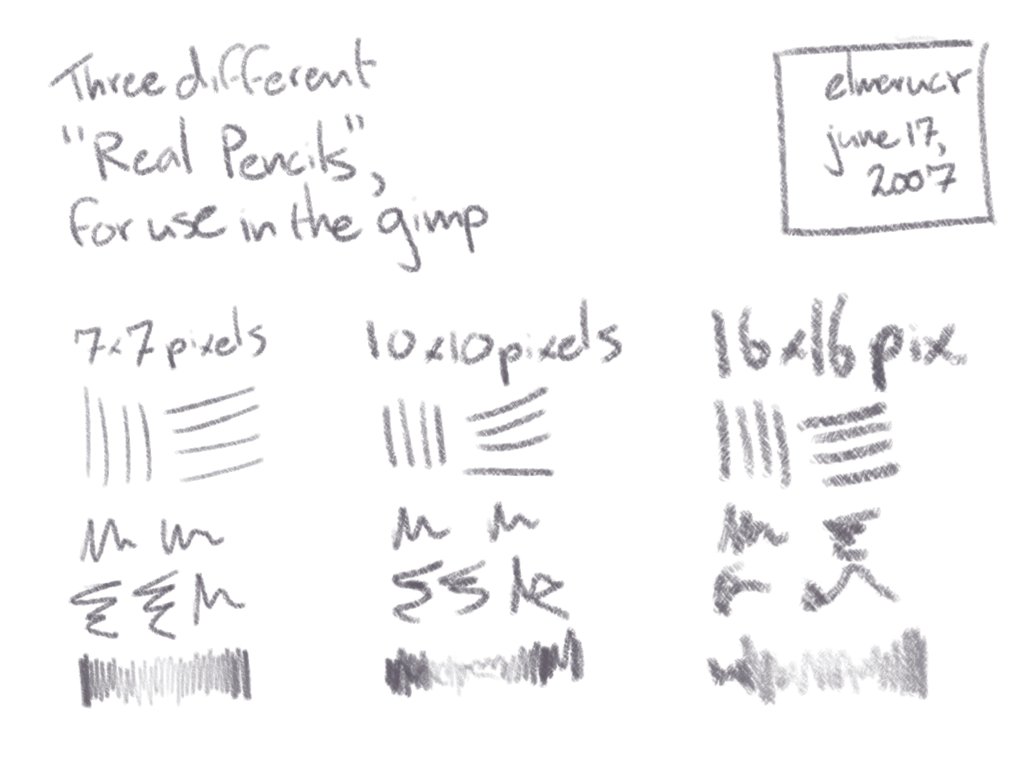 Three different
"Real Pencils",
for use in the gimp
elmerucr
june 17,
2007
7x7 pixels
10x10 pixels
16x16 pix.